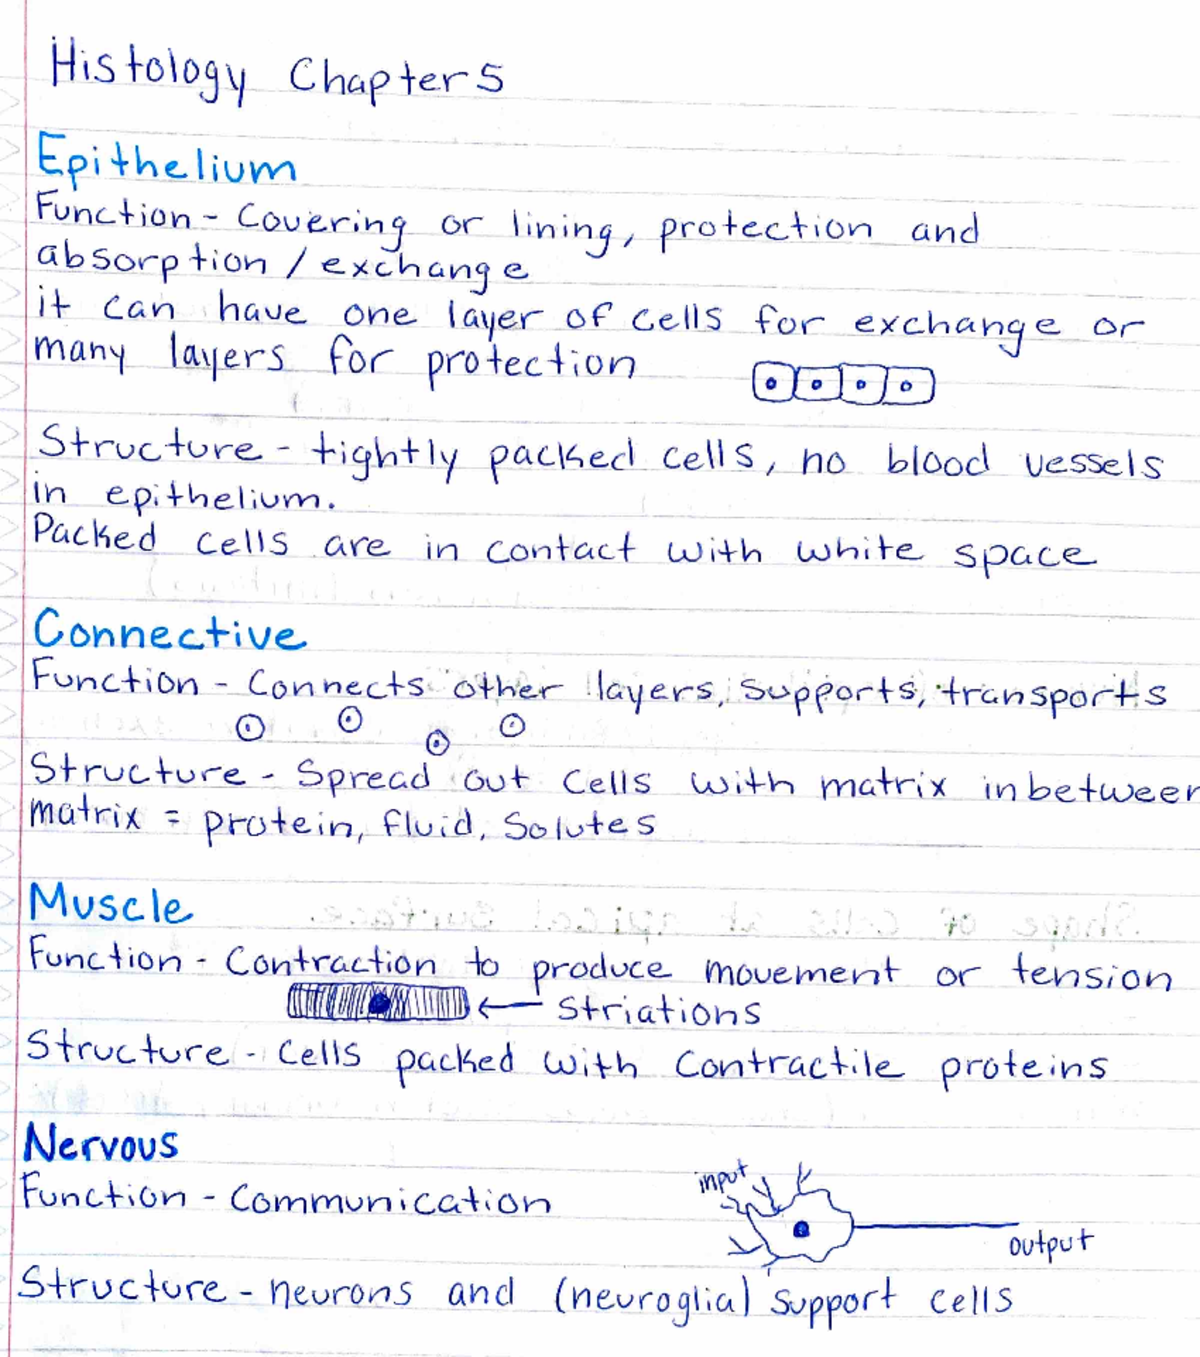 Histology Chapter 5
Epithelium
Function - Covering or lining, protection and
absorption / exchange
it can have one layer of cells for exchange or
many layers for protection
Structure - tightly packed cells, no blood vessels
in epithelium.
Packed cells are in contact with white space
Connective
Function - Connects other layers, supports, transports
Structure - Spread out cells with matrix inbetween
matrix = protein, fluid, Solutes
Muscle
Shape of cells at apical surface.
Function - Contraction to produce movement or tension
← Striations
Structure - Cells packed with Contractile proteins
Nervous
input
Function - Communication
output
Structure - neurons and (neuroglia) support cells